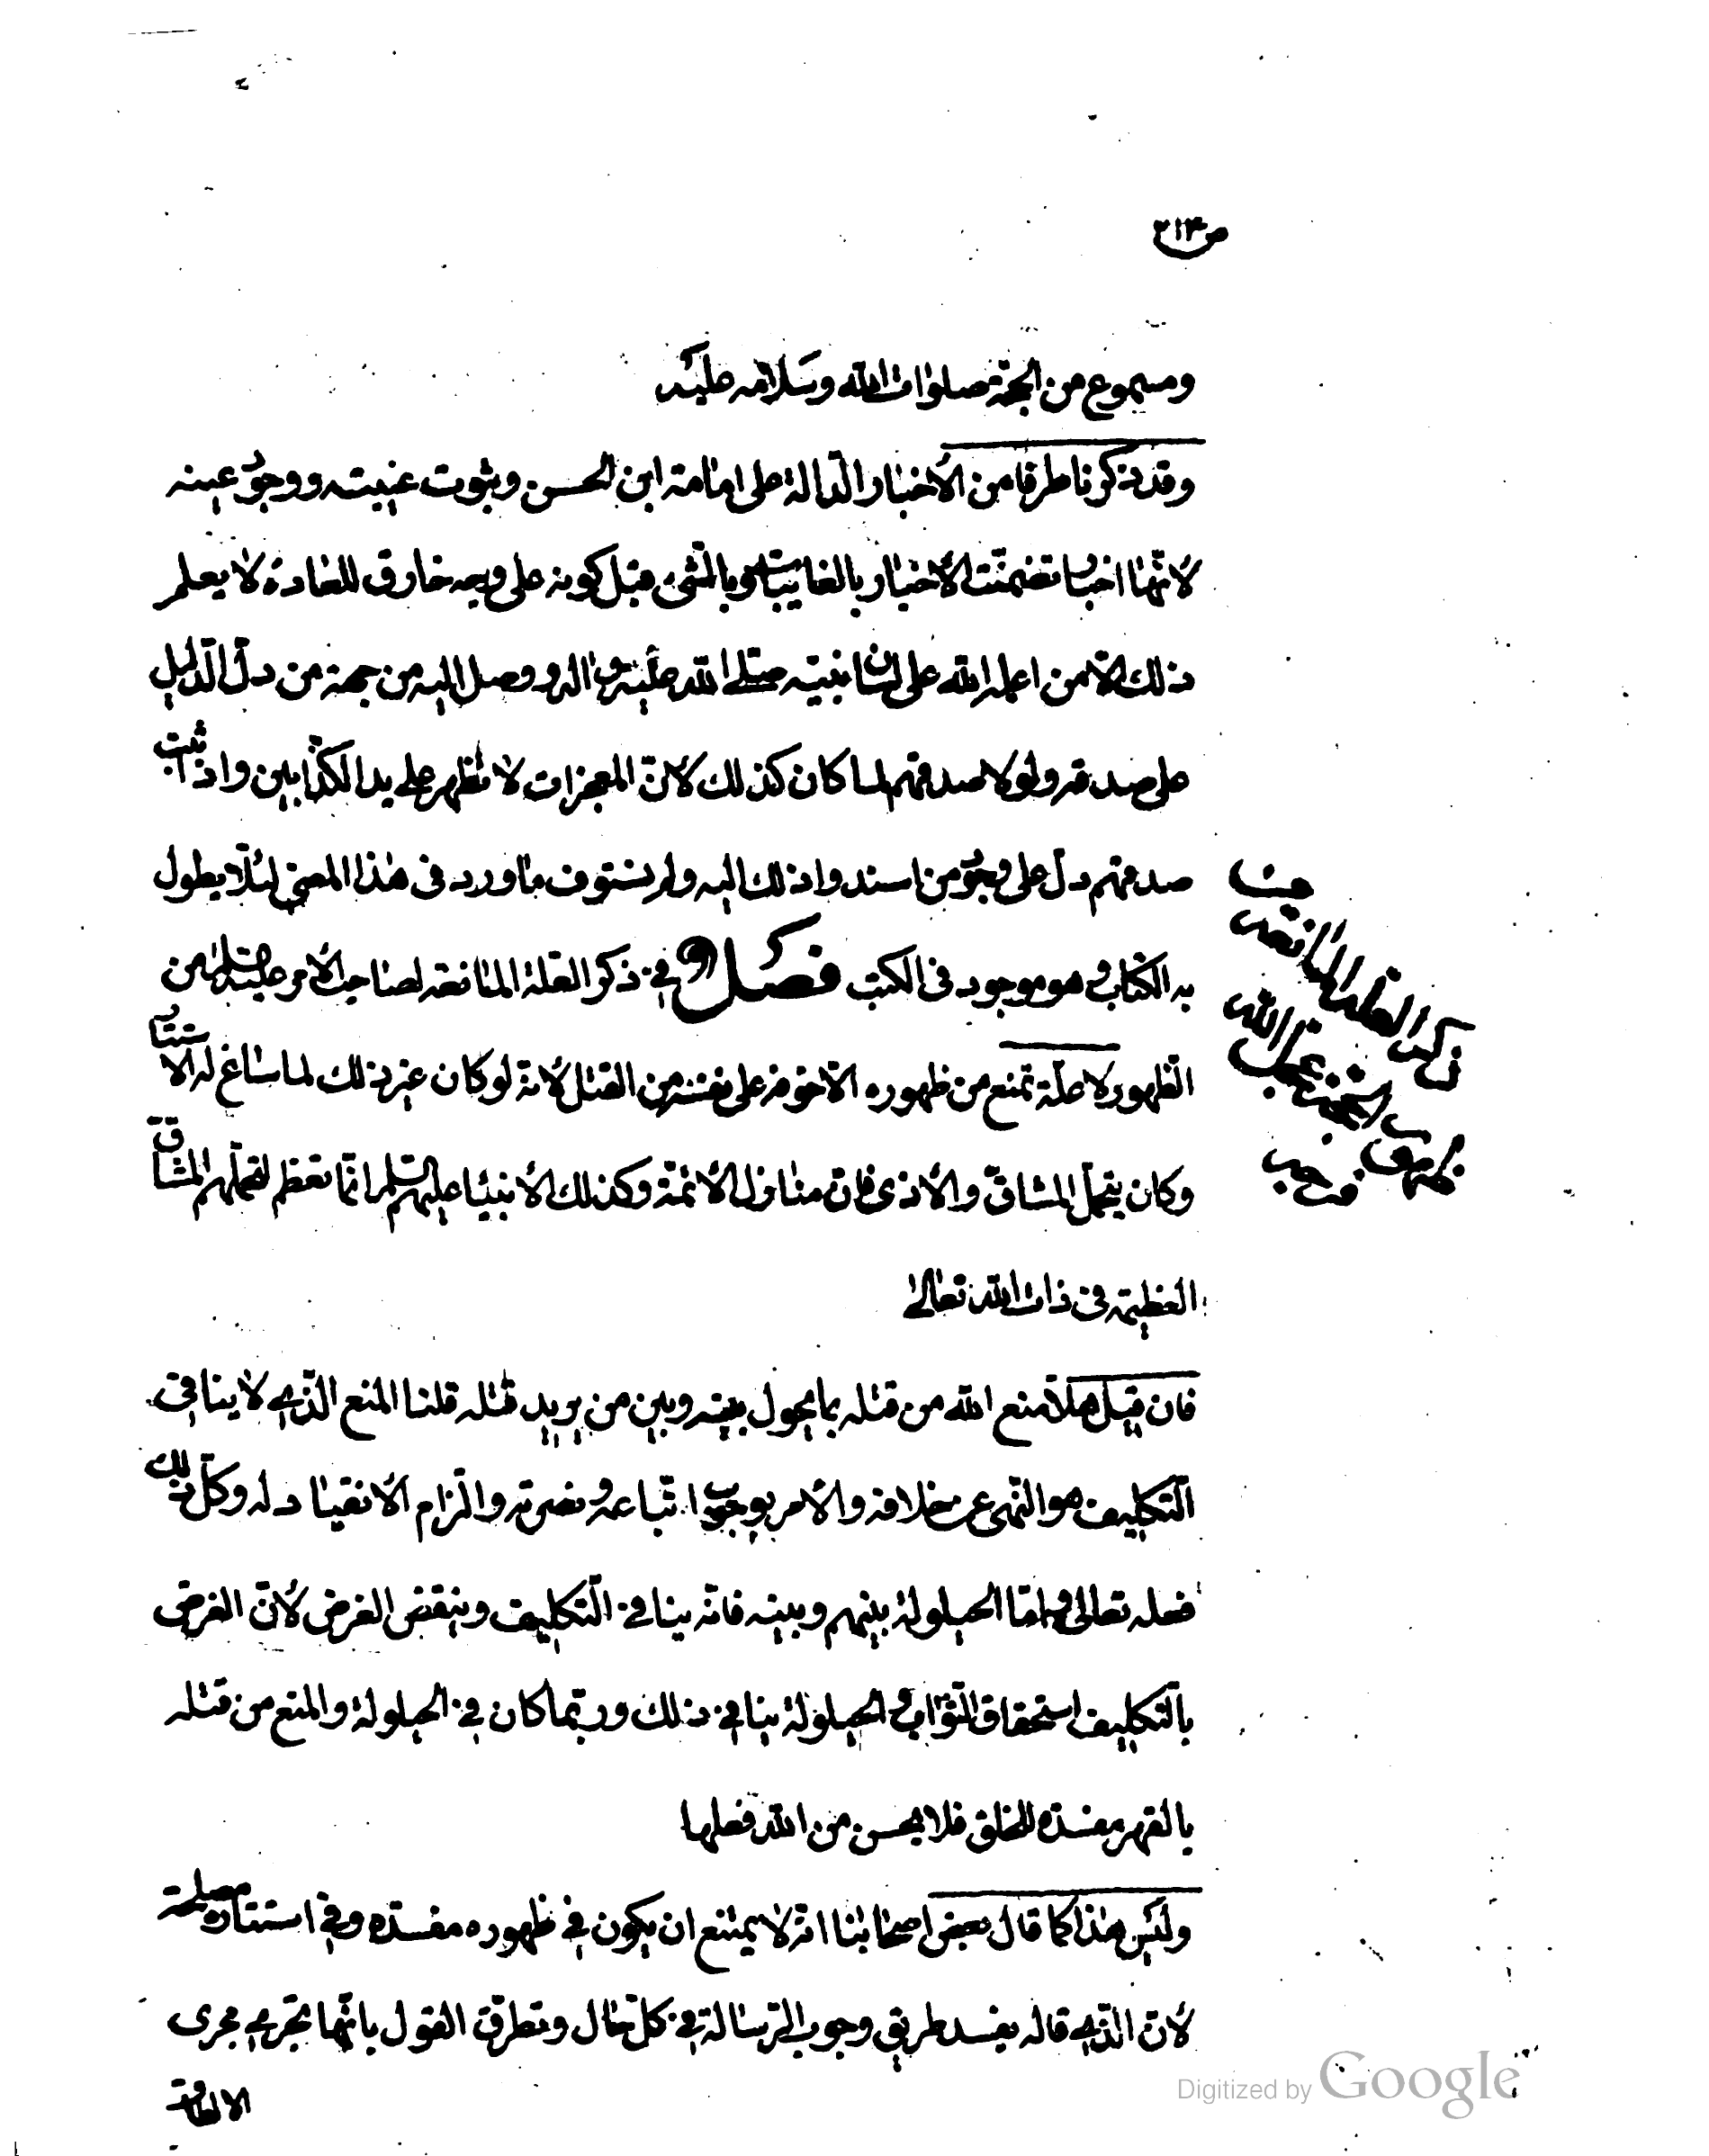 ص ٢١٣
ومسموع من الحجة صلوات الله وسلامه عليه
وقد ذكرنا طرفا من الأخبار الدالة على امامة ابن الحسن وثبوت غيبته ووجود عينه
لأنها اخبار تضمنت الأخبار بالغايبات وبالشئ قبل كونه على وجه خارق للعادة لا يعلم
ذلك الا من اعلمه الله على لسان نبيه صلى الله عليه واله ووصل اليه من جهة من دل الدليل
على صدقه ولولا صدقهم لما كان كذلك لأن المعجزات لا تظهر على يد الكذابين واذا ثبت
صدقهم دل على وجود من اسندوا ذلك اليه ولم نستوف ما ورد فى هذا المعنى لئلا يطول
به الكتاب وهو موجود فى الكتب فصل و في ذكر العلة المانعة لصاحب الأمر عليه السلام من
الظهور لا علة تمنع من ظهوره الا خوفه على نفسه من القتل لأنه لو كان غير ذلك لما ساغ له الاستتار
وكان يتحمل المشاق والأذى فان منازل الأئمة وكذلك الأنبياء عليهم السلم انما تعظم لتحملهم المشاق
العظيمة فى ذات الله تعالى
فان قيل هلا منع الله من قتله بما يحول بينه وبين من يريد قتله قلنا المنع الذي لا ينافى
التكليف هو النهى عن خلافه والأمر بوجوب اتباعه ونصرته والزام الانقياد له وكل ذلك
فعله تعالى واما الحيلولة بينهم وبينه فانه ينافى التكليف وينقض الغرض لأن الغرض
بالتكليف استحقاق الثواب والحيلولة ينافي ذلك وربما كان في الحيلولة والمنع من قتله
بالقهر مفسدة للخلق فلا يحسن من الله فعلها
وليس هذا كما قال بعض اصحابنا انه لا يمتنع ان يكون في ظهوره مفسدة وفي استتاره مصلحة
لأن الذي قاله يفسد طريق وجوب الرسالة في كل حال وتطرق القول بأنها تجري مجرى
الالطاف
ذكر العلة المانعة
Digitized by Google